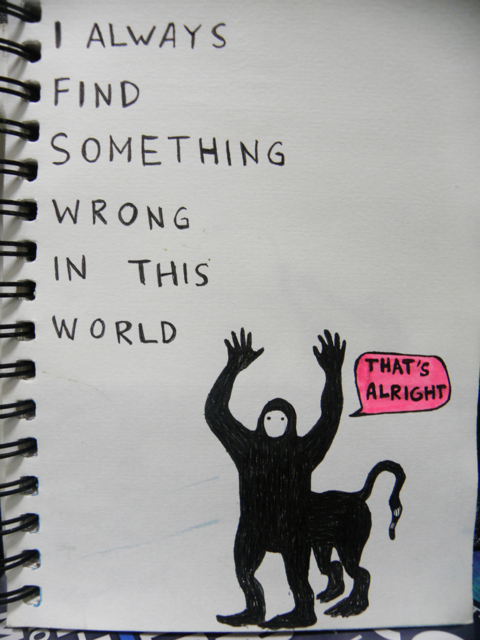 I ALWAYS
FIND
SOMETHING
WRONG
IN THIS
WORLD
THAT'S
ALRIGHT